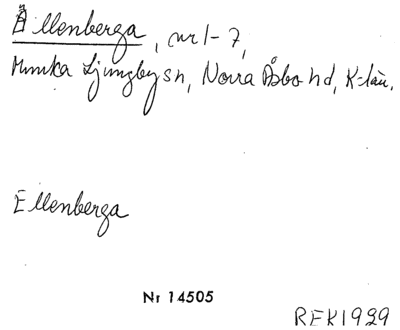 Ellenberga, nr 1-7,
Munka Ljungby sn, Norra Åsbo hd, K-län.
Ellenberga
Nr 14505
REK1929